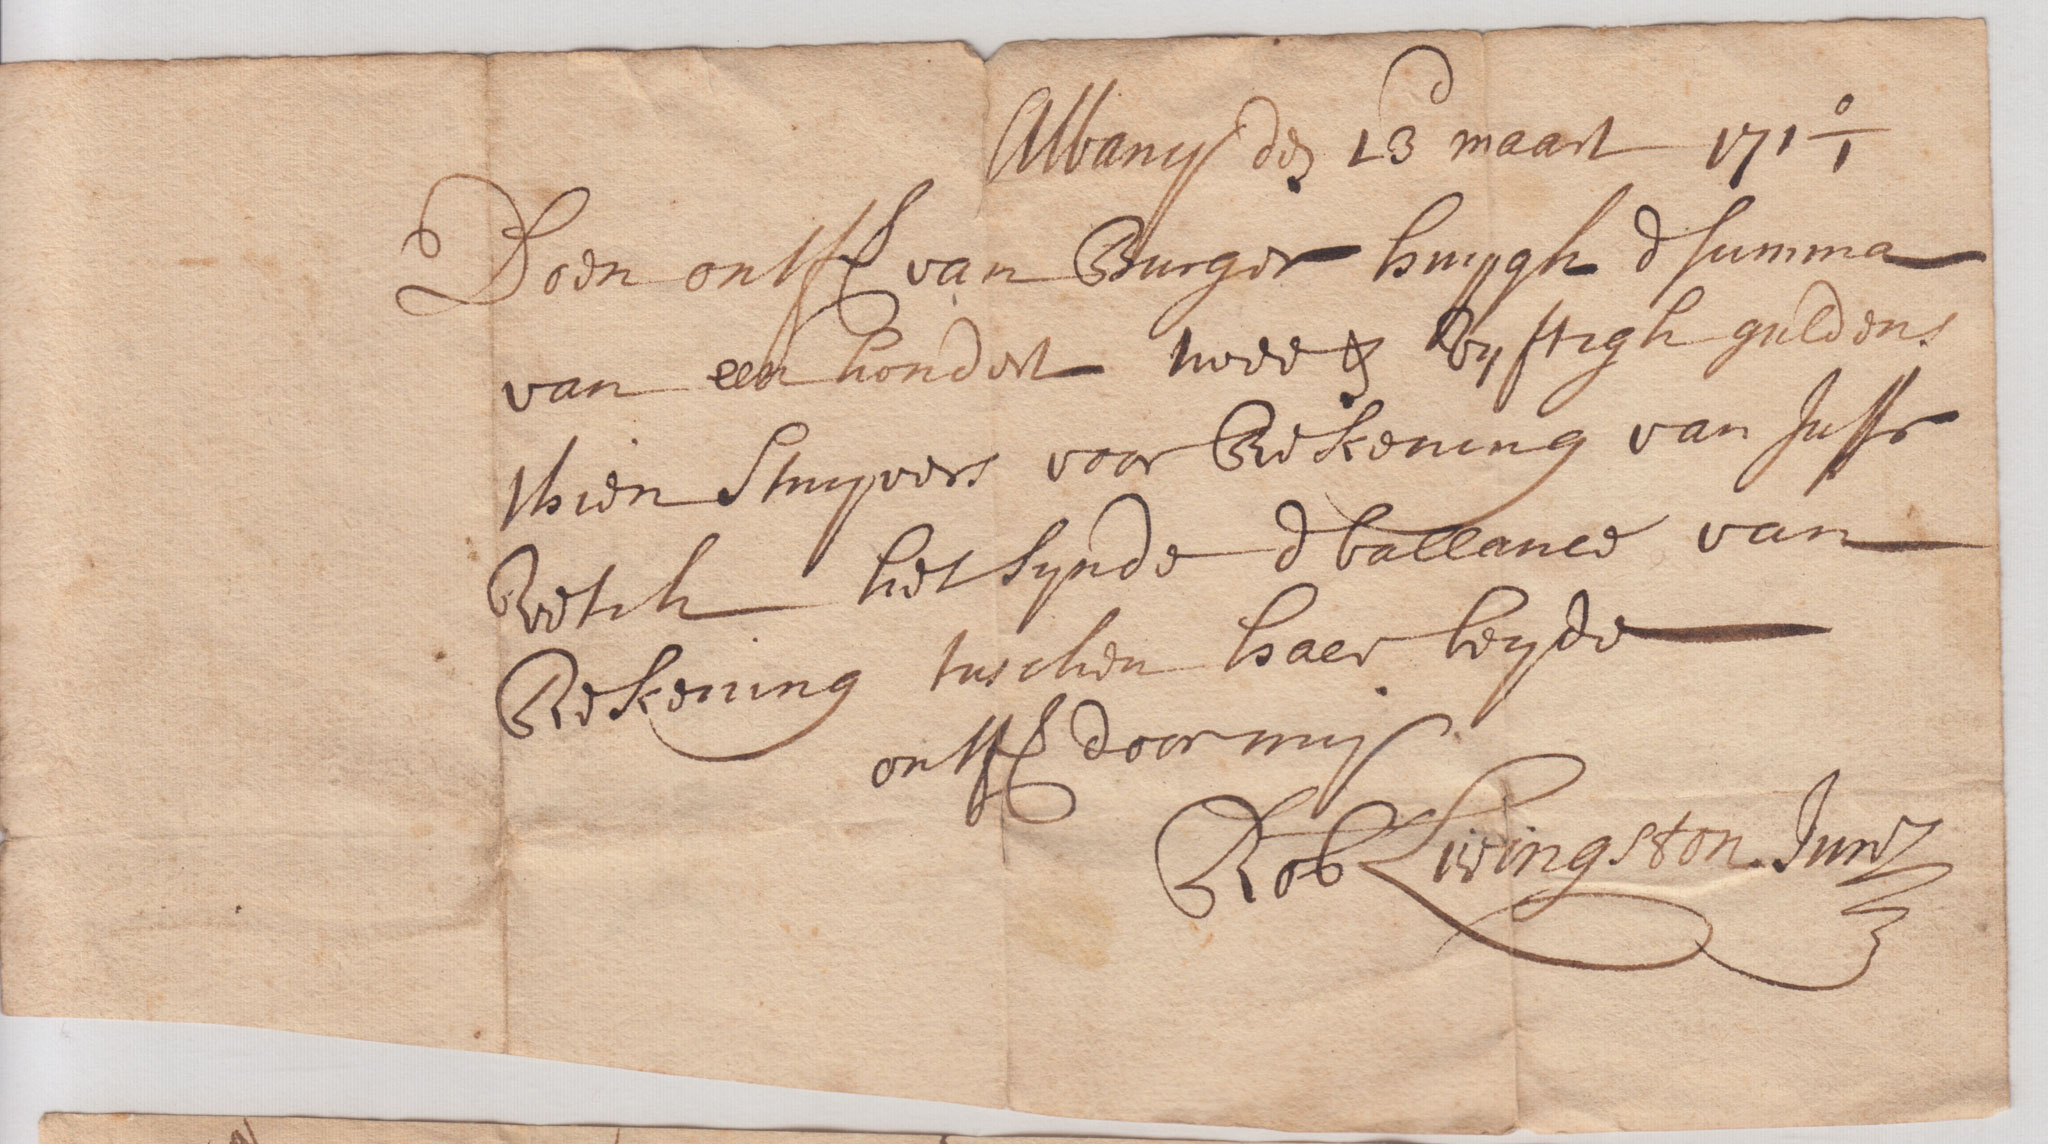 Albany den 13 maart 171 0/1
Doen ontf van Burger huygh d summa
van een hondert twee & vyftigh guldens
thien Stuyvers voor Rekening van Juffr
Vetch het Synde d ballance van
Rekening tuschen haer beyde
ontf door my
Rob Livingston Junr